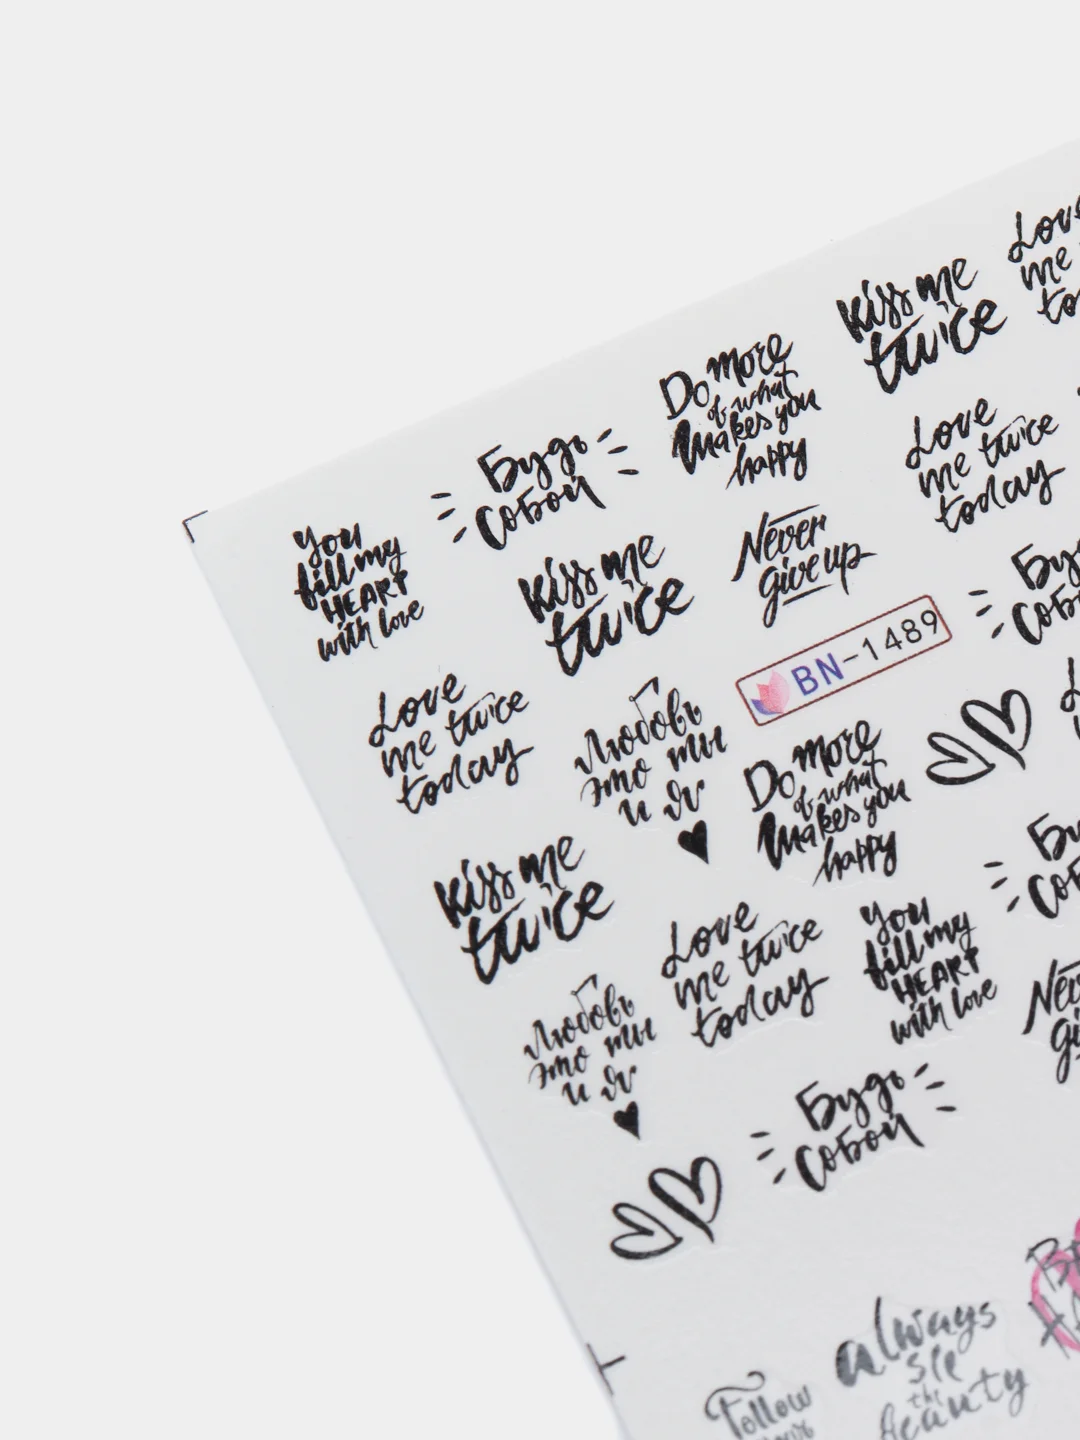 Love
me
to
Kiss me
twice
Do more
of what
Makes you
happy
Love
me twice
today
Будь
собой
You
fill my
HEART
with love
Kiss me
twice
Never
give up
Бу
собо
BN-1489
Love
me twice
today
Любовь
это ты
и я
Do more
of what
Makes you
happy
Kiss me
twice
Love
me twice
today
You
fill my
HEART
with love
Бу
соб
Neve
gi
Любовь
это ты
и я
Будь
собой
always
see
the
beauty
Follow